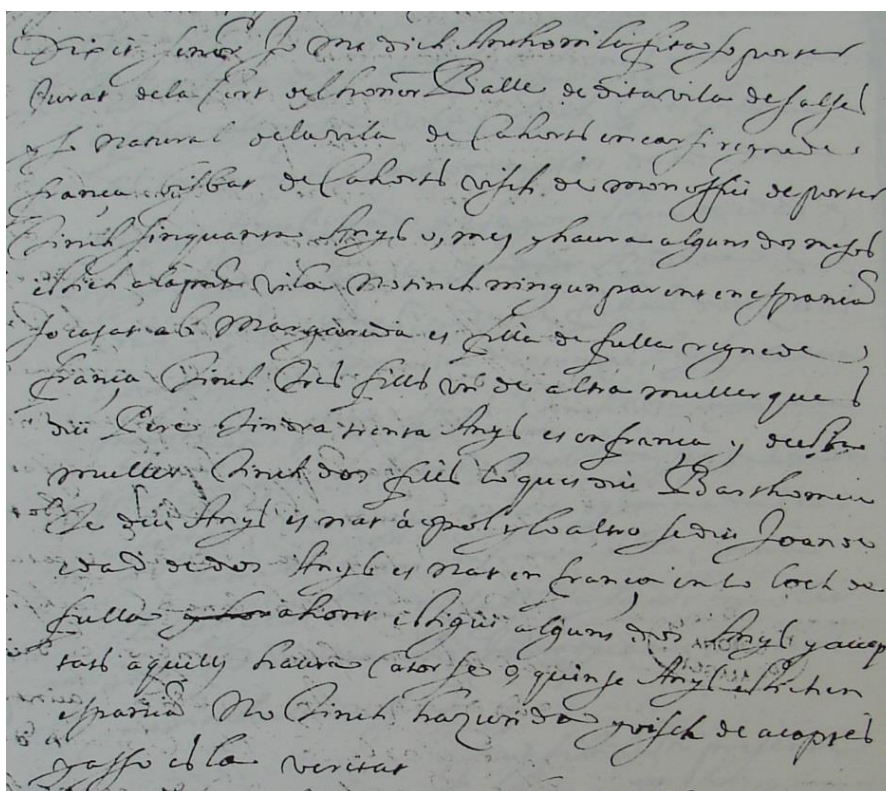 Dixit señor Jo me dich Anthoni la fita so porter
Jurat de la Cort del honor Balle de dita vila de salses
y so natural de la vila de Cahorts en carsi regne de
frança bisbat de Cahorts visch de mon offici de porter
Tinch sinquanta Anys o, mes y haura alguns dos mesos
estich a la pnt vila No tinch ningun parent en espania
So casat ab Margarida es filla de fulla regne de
frança Tinch Tres fills un de altra muller que s
diu Pere Tindra trenta Anys es en frança y de esta
muller Tinch dos fills lo ques diu Barthomeu
de deu Anys es nat á opol y lo altro se diu Joan de
edad de dos Anys es nat en frança en lo loch de
fulla y hont estigui alguns dos Anys y accep
tats aquells haura Catorse o quinse Anys estich en
espania No Tinch hazienda y visch de acaptes
y asso es la veritat